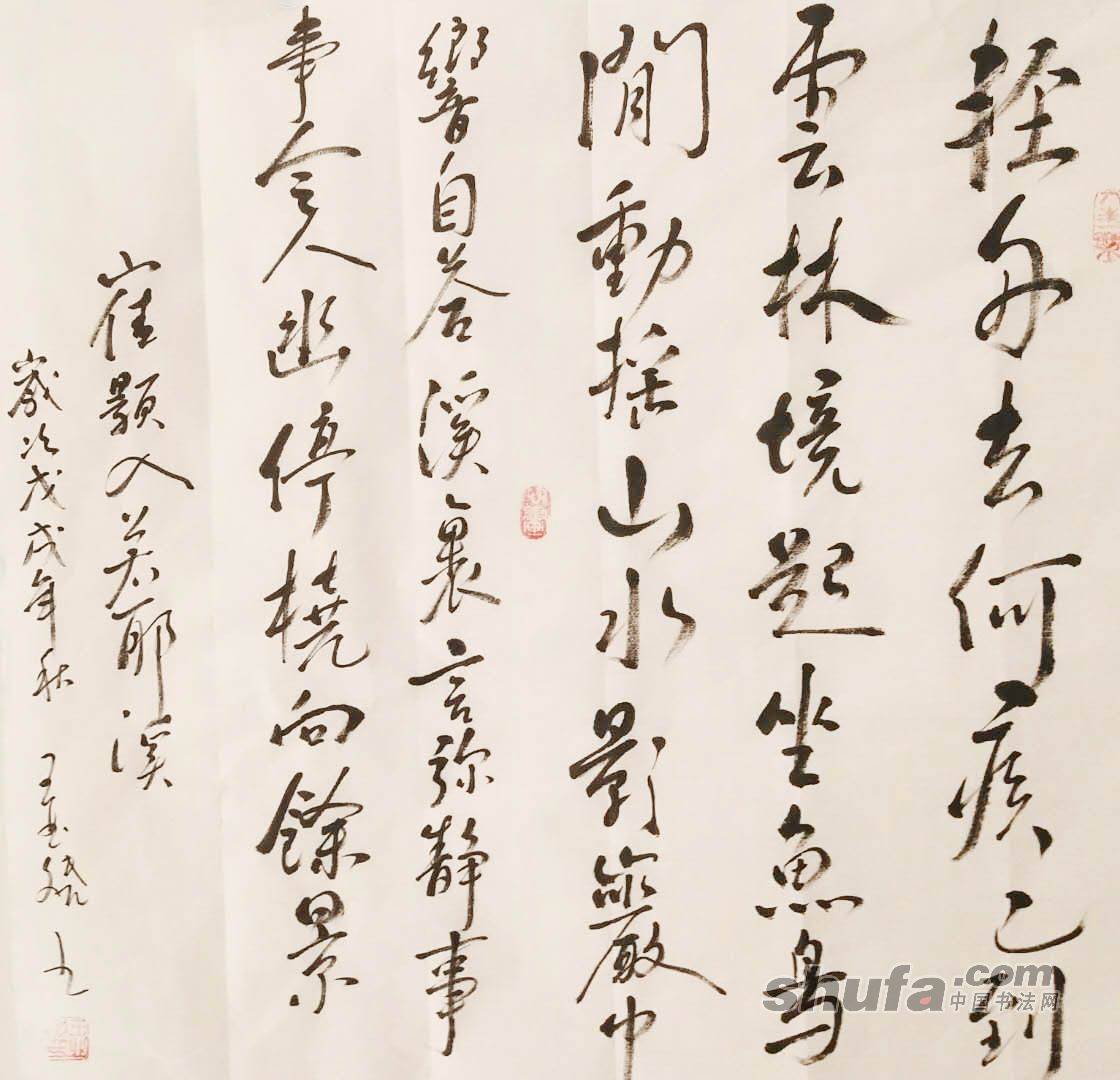 輕舟去何疾已到
雲林境起坐魚鳥
間動搖山水影巖中
響自答溪裏言弥靜事
事令人幽停橈向餘景
崔顥入若耶溪
歲次戊戌年秋 王
shufa.com
中国书法网